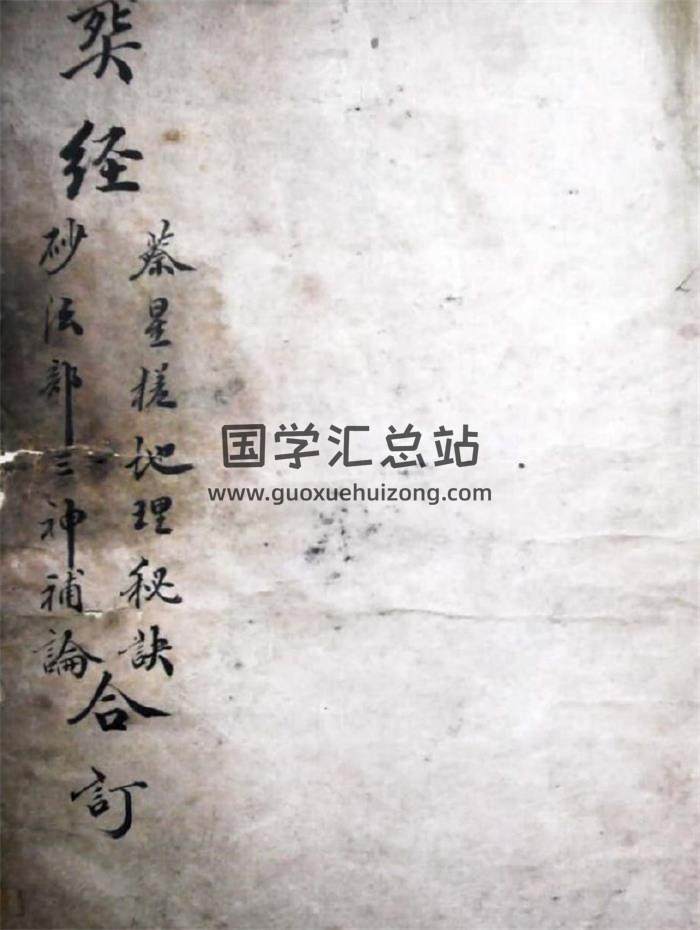 葬经
蔡星槎地理秘訣
砂法部三神補論
合訂
国学汇总站
www.guoxuehuizong.com